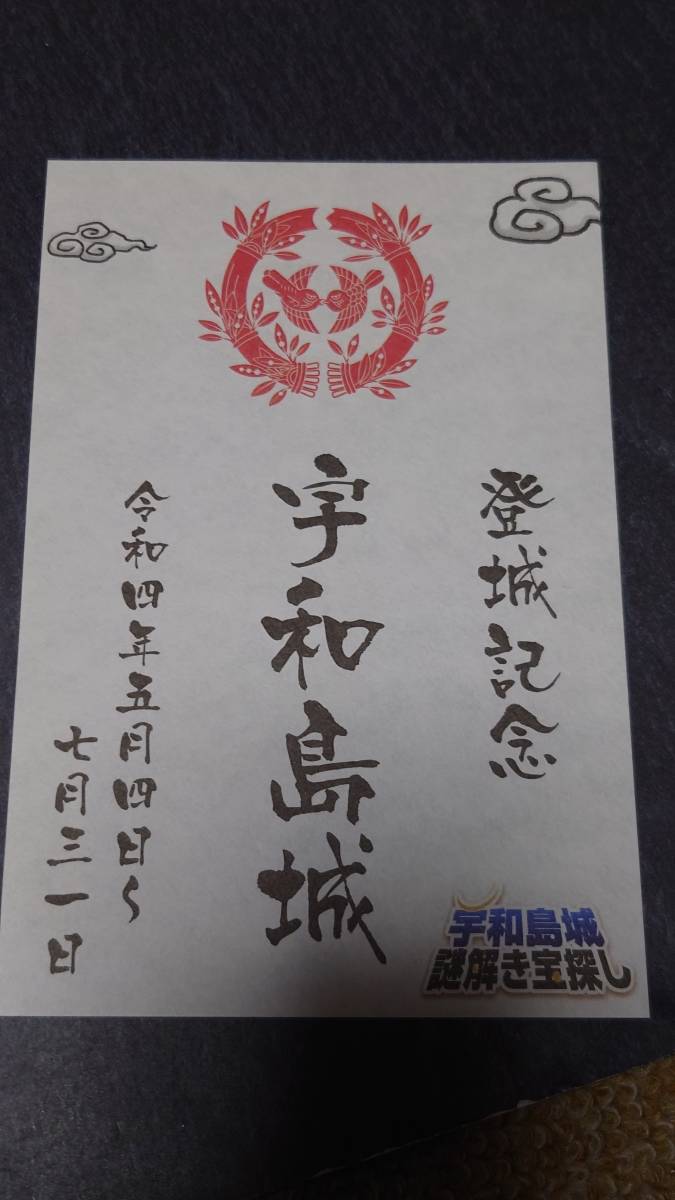 登城記念
宇和島城
令和四年五月四日〜
七月三一日
宇和島城
謎解き宝探し